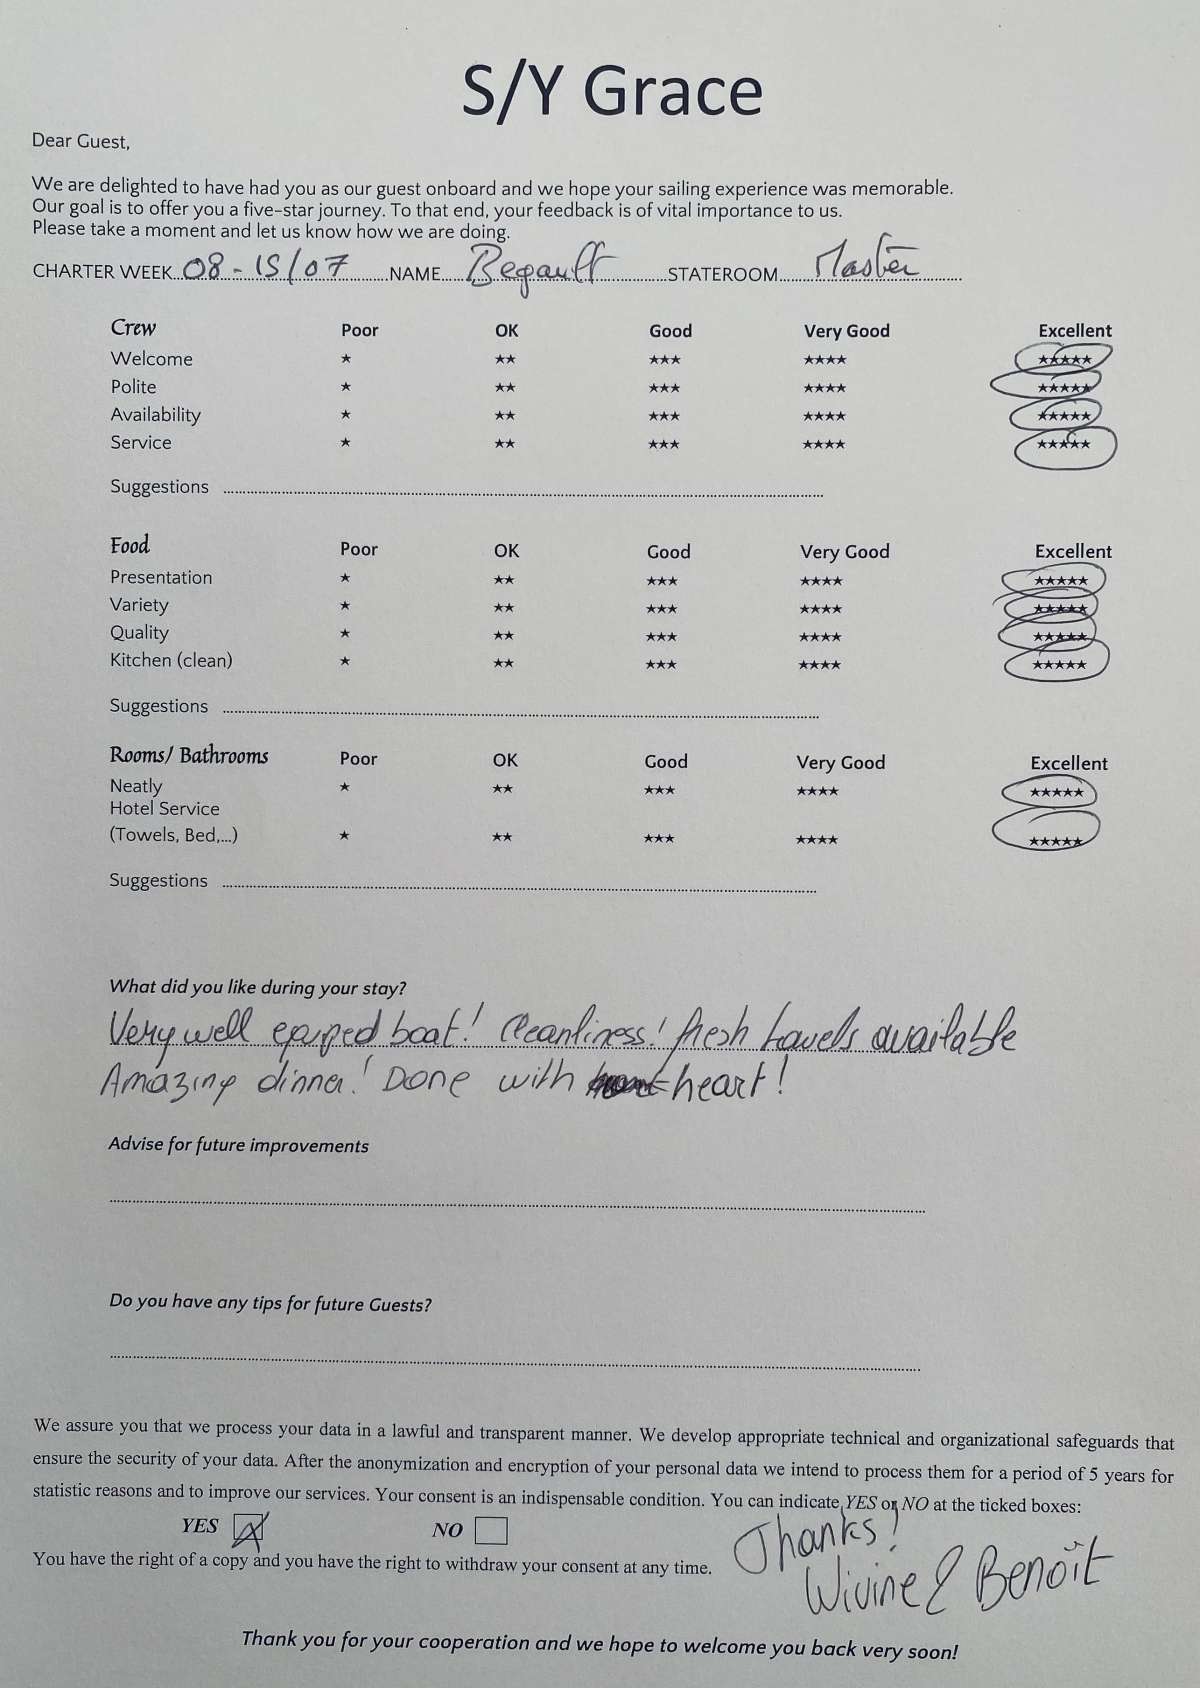 S/Y Grace
Dear Guest,
We are delighted to have had you as our guest onboard and we hope your sailing experience was memorable.
Our goal is to offer you a five-star journey. To that end, your feedback is of vital importance to us.
Please take a moment and let us know how we are doing.
CHARTER WEEK 08-15/07 NAME Begault STATEROOM Master
Crew Poor OK Good Very Good Excellent
Welcome ★ ★★ ★★★ ★★★★ ★★★★★
Polite ★ ★★ ★★★ ★★★★ ★★★★★
Availability ★ ★★ ★★★ ★★★★ ★★★★★
Service ★ ★★ ★★★ ★★★★ ★★★★★
Suggestions
Food Poor OK Good Very Good Excellent
Presentation ★ ★★ ★★★ ★★★★ ★★★★★
Variety ★ ★★ ★★★ ★★★★ ★★★★★
Quality ★ ★★ ★★★ ★★★★ ★★★★★
Kitchen (clean) ★ ★★ ★★★ ★★★★ ★★★★★
Suggestions
Rooms/ Bathrooms Poor OK Good Very Good Excellent
Neatly ★ ★★ ★★★ ★★★★ ★★★★★
Hotel Service
(Towels, Bed,...) ★ ★★ ★★★ ★★★★ ★★★★★
Suggestions
What did you like during your stay?
Very well boat! Cleanliness! fresh towels available
Amazing dinner! Done with heart!
Advise for future improvements
Do you have any tips for future Guests?
We assure you that we process your data in a lawful and transparent manner. We develop appropriate technical and organizational safeguards that
ensure the security of your data. After the anonymization and encryption of your personal data we intend to process them for a period of 5 years for
statistic reasons and to improve our services. Your consent is an indispensable condition. You can indicate YES or NO at the ticked boxes:
YES NO
Thanks!
You have the right of a copy and you have the right to withdraw your consent at any time.
Wivine & Benoît
Thank you for your cooperation and we hope to welcome you back very soon!